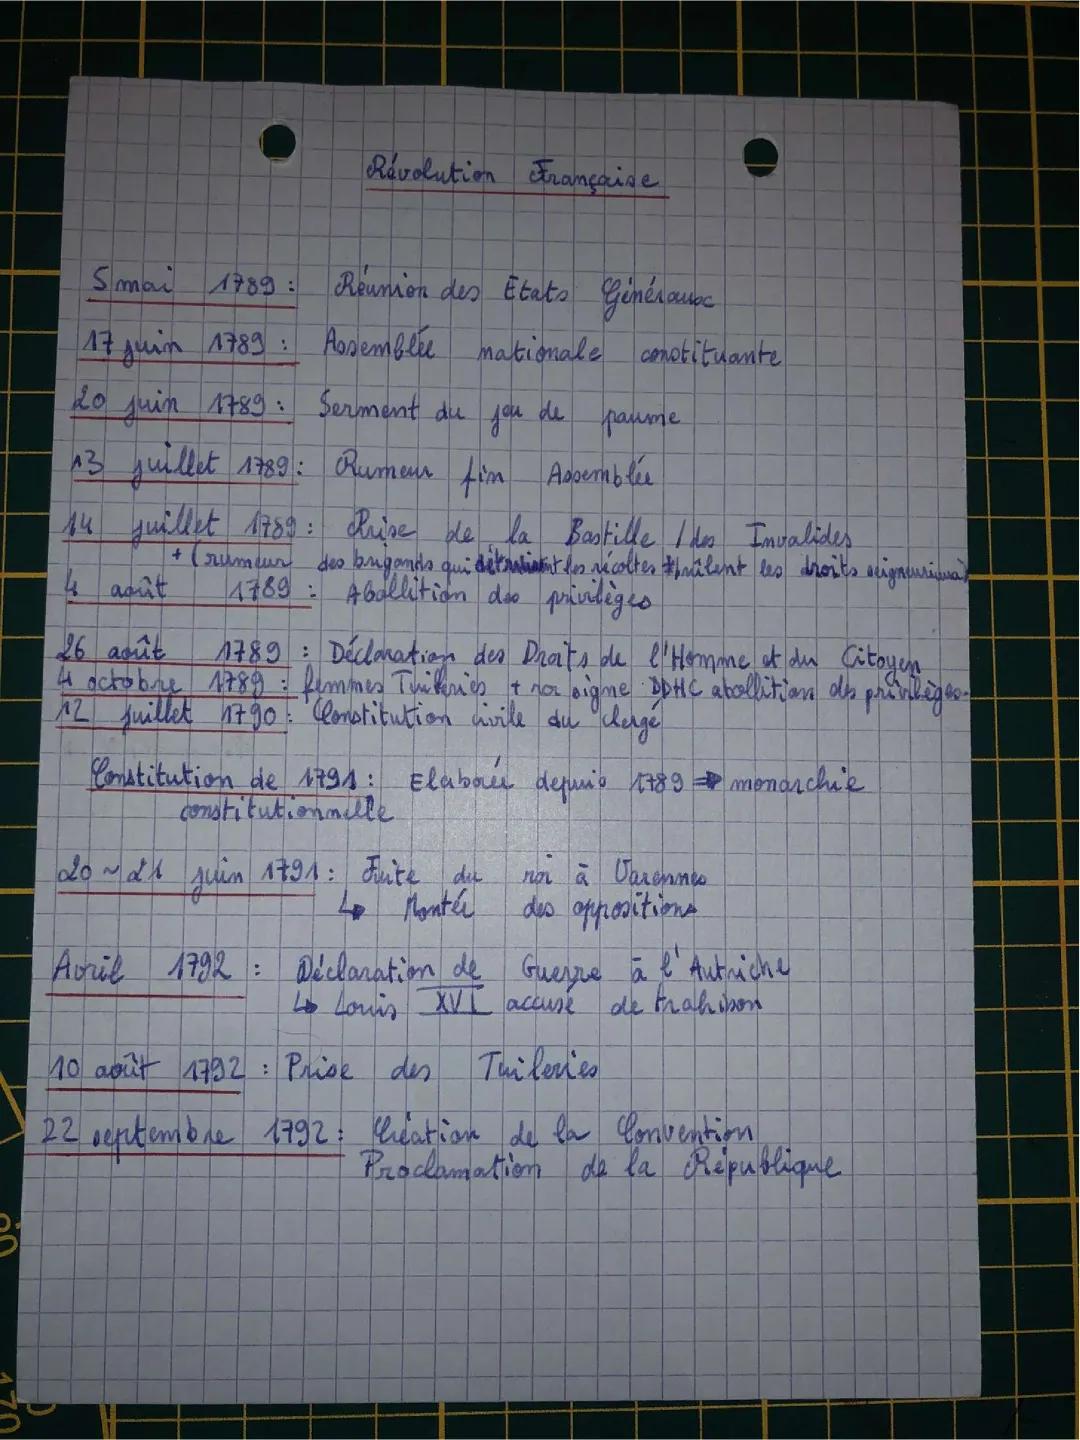 Révolution Française
5 mai 1789 : Réunion des Etats Généraux
17 juin 1789 : Assemblée nationale constituante
20 juin 1789 : Serment du jeu de paume
13 juillet 1789 : Rumeur fin Assemblée
14 juillet 1789 : Prise de la Bastille / des Invalides
+ (rumeur des brigands qui les récoltes brûlent les droits seigneuriaux
4 août 1789 : Abollition des privilèges
26 août 1789 : Déclaration des Droits de l'Homme et du Citoyen
4 octobre 1789 : femmes Tuileries + roi signe DDHC abollition des privilèges.
12 juillet 1790 : Constitution civile du clergé
Constitution de 1791 : Elaborée depuis 1789 ⇒ monarchie
constitutionnelle
20 ~ 21 juin 1791 : Fuite du roi à Varennes
↳ Montée des oppositions
Avril 1792 : Déclaration de Guerre à l'Autriche
↳ Louis XVI accusé de trahison
10 août 1792 : Prise des Tuileries
22 septembre 1792 : Création de la Convention
Proclamation de la République